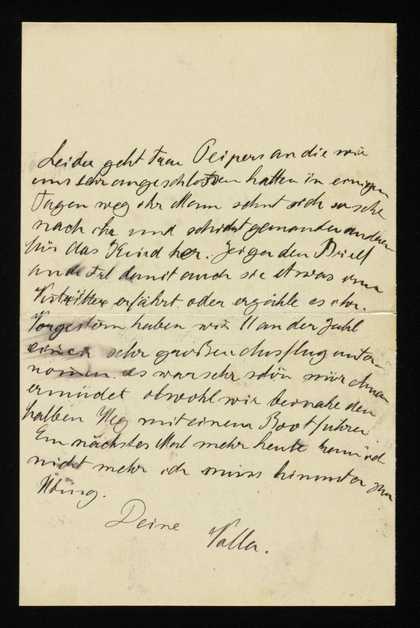 Leider geht Frau Peipers an die wir
uns sehr angeschlossen hatten in einigen
Tagen weg ihr Mann sehnt sich so sehr
nach ihr und schickt jemanden anderen
für das Kind her. Zeige den Brief
damit auch sie etwas von
erfährt oder erzähle es ihr.
Vorgestern haben wir 11 an der Zahl
einen sehr großen Ausflug unter
nomen. es war sehr schön nur
ermüdet obwohl wir beinahe den
halben Weg mit einem Boot fuhren
Ein nächstes Mal mehr heute kann ich
nicht mehr ich muss hinunter zur
Deine